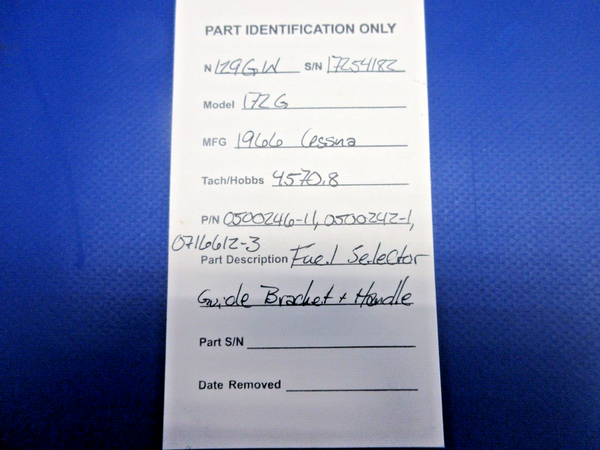 PART IDENTIFICATION ONLY
N 129GW S/N 17254182
Model 172G
MFG 1966 Cessna
Tach/Hobbs 4570.8
P/N 0500246-11, 0500242-1,
0716612-3
Part Description Fuel Selector
Guide Bracket + Handle
Part S/N
Date Removed